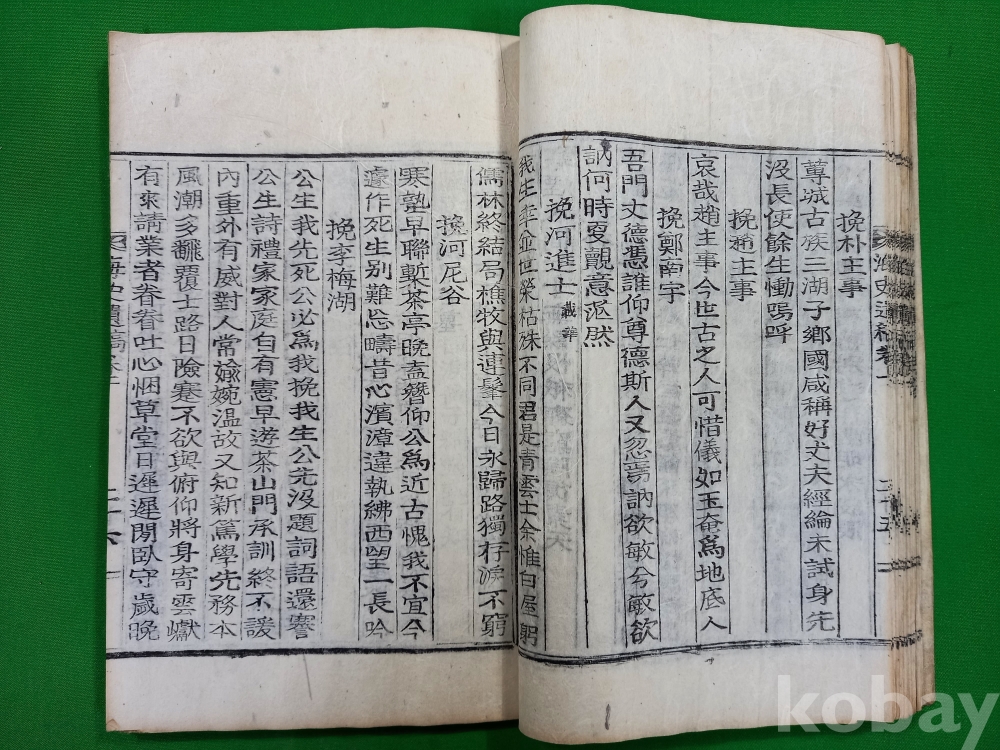 挽朴主事
蓴城古族三湖子鄕國咸稱好丈夫經綸未試身先
沒長使餘生慟嗚呼
挽趙主事
哀哉趙主事今世古之人可惜儀如玉奄爲地底人
挽鄭南宇
吾門丈德憑誰仰尊德斯人又忽焉訥欲敏兮敏欲
訥何時更觀意泝然
挽河進士 載
我生幸並世榮枯殊不同君是靑雲士余惟白屋躬
儒林終結局樵牧與連髼今日永歸路獨存淚不窮
挽河尼谷
寒塾早聯槧茶亭晩盍簪仰公爲近古愧我不宜今
遽作死生別難忘疇昔心濱漳違執紼西望一長吟
挽李梅湖
公生我先死公必爲我挽我生公先沒題詞語還謇
公生詩禮家家庭自有憲早遊茶山門承訓終不諼
內重外有威對人常婾婉溫故又知新篤學先務本
風潮多飜覆士路日險蹇不欲與俯仰將身寄雲巘
有來請業者眷眷吐心悃草堂日遲遲閒臥守歲晩
二十五
海史遺稿卷二
二十六
kobay